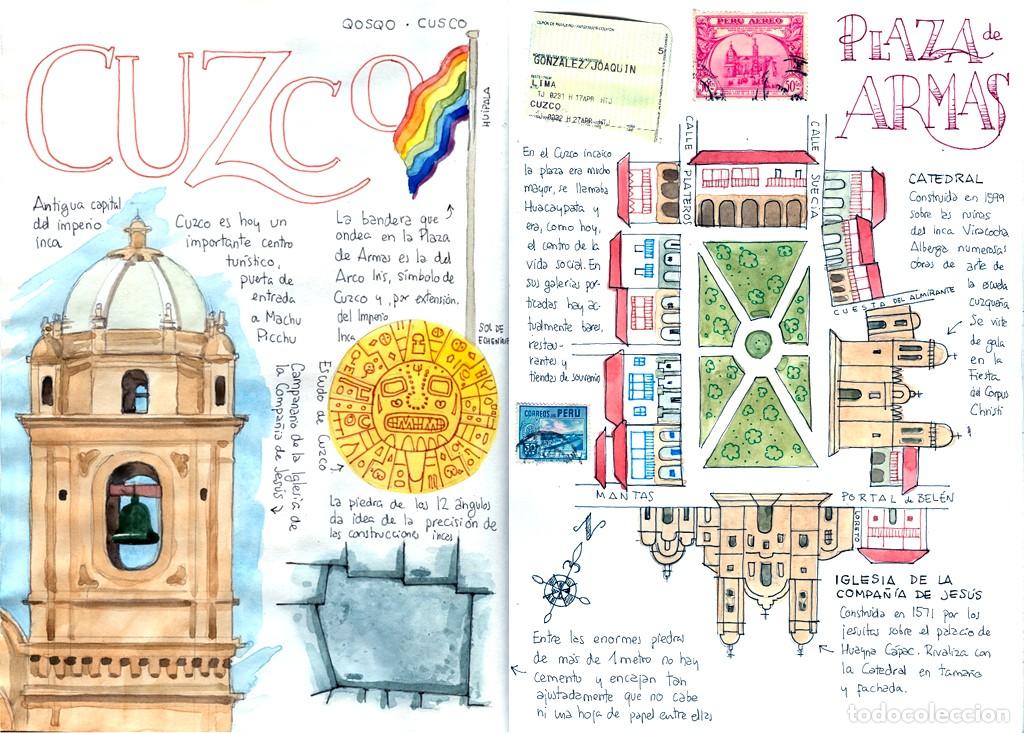 QOSQO · CUSCO
CUZCO
HUIPALA
Antigua capital
del imperio
inca
Cuzco es hoy un
importante centro
turístico,
puerta de
entrada
a Machu
Picchu
La bandera que
ondea en la Plaza
de Armas es la del
Arco Iris, símbolo de
Cuzco y, por extensión,
del Imperio
Inca
SOL DE
ECHENIQUE
Escudo de Cuzco
Campanario de la Iglesia de
la Compañía de Jesús
La piedra de los 12 ángulos
da idea de la precisión de
las construcciones incas
GONZALEZ/JOAQUIN
LIMA
CUZCO
5
PERU AEREO
50
PLAZA de
ARMAS
En el Cuzco incaico
la plaza era mucho
mayor, se llamaba
Huacaypata y
era, como hoy,
el centro de la
vida social. En
sus galerías por-
ticadas hay ac-
tualmente bares,
restau-
rantes y
tiendas de souvenirs
CORREOS DEL PERU
CALLE PLATEROS
CALLE SUECIA
CATEDRAL
Construida en 1599
sobre las ruinas
del inca Viracocha
Alberga numerosas
obras de arte de
la escuela
cuzqueña
Se viste
de gala
en la
Fiesta
del Corpus
Christi
CUESTA DEL ALMIRANTE
MANTAS
PORTAL de BELÉN
LORETO
N
IGLESIA DE LA
COMPAÑÍA DE JESÚS
Construida en 1571 por los
jesuitas sobre el palacio de
Huayna Cápac. Rivaliza con
la Catedral en tamaño
y fachada.
Entre las enormes piedras
de más de 1 metro no hay
cemento y encajan tan
ajustadamente que no cabe
ni una hoja de papel entre ellas
todocoleccion